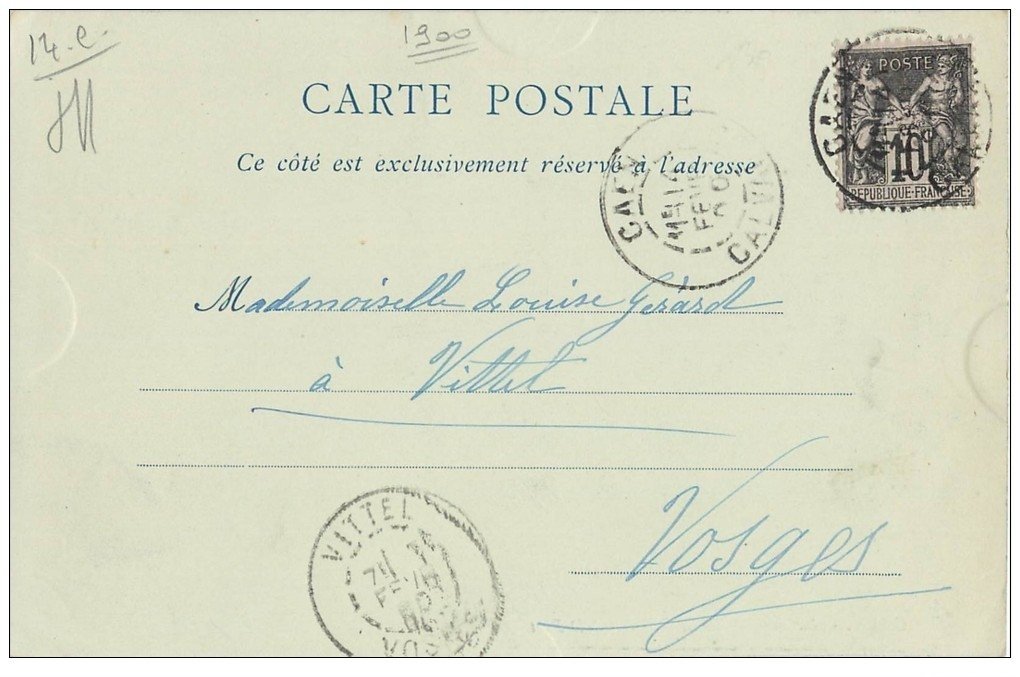 14.e.
1900
CARTE POSTALE
Ce côté est exclusivement réservé à l'adresse
POSTE
10
REPUBLIQUE FRANÇAISE
CAEN
CAEN
FEVR
CALV
Mademoiselle Louise Gérard
à Vittel
Vosges
VITTEL
VOSGES